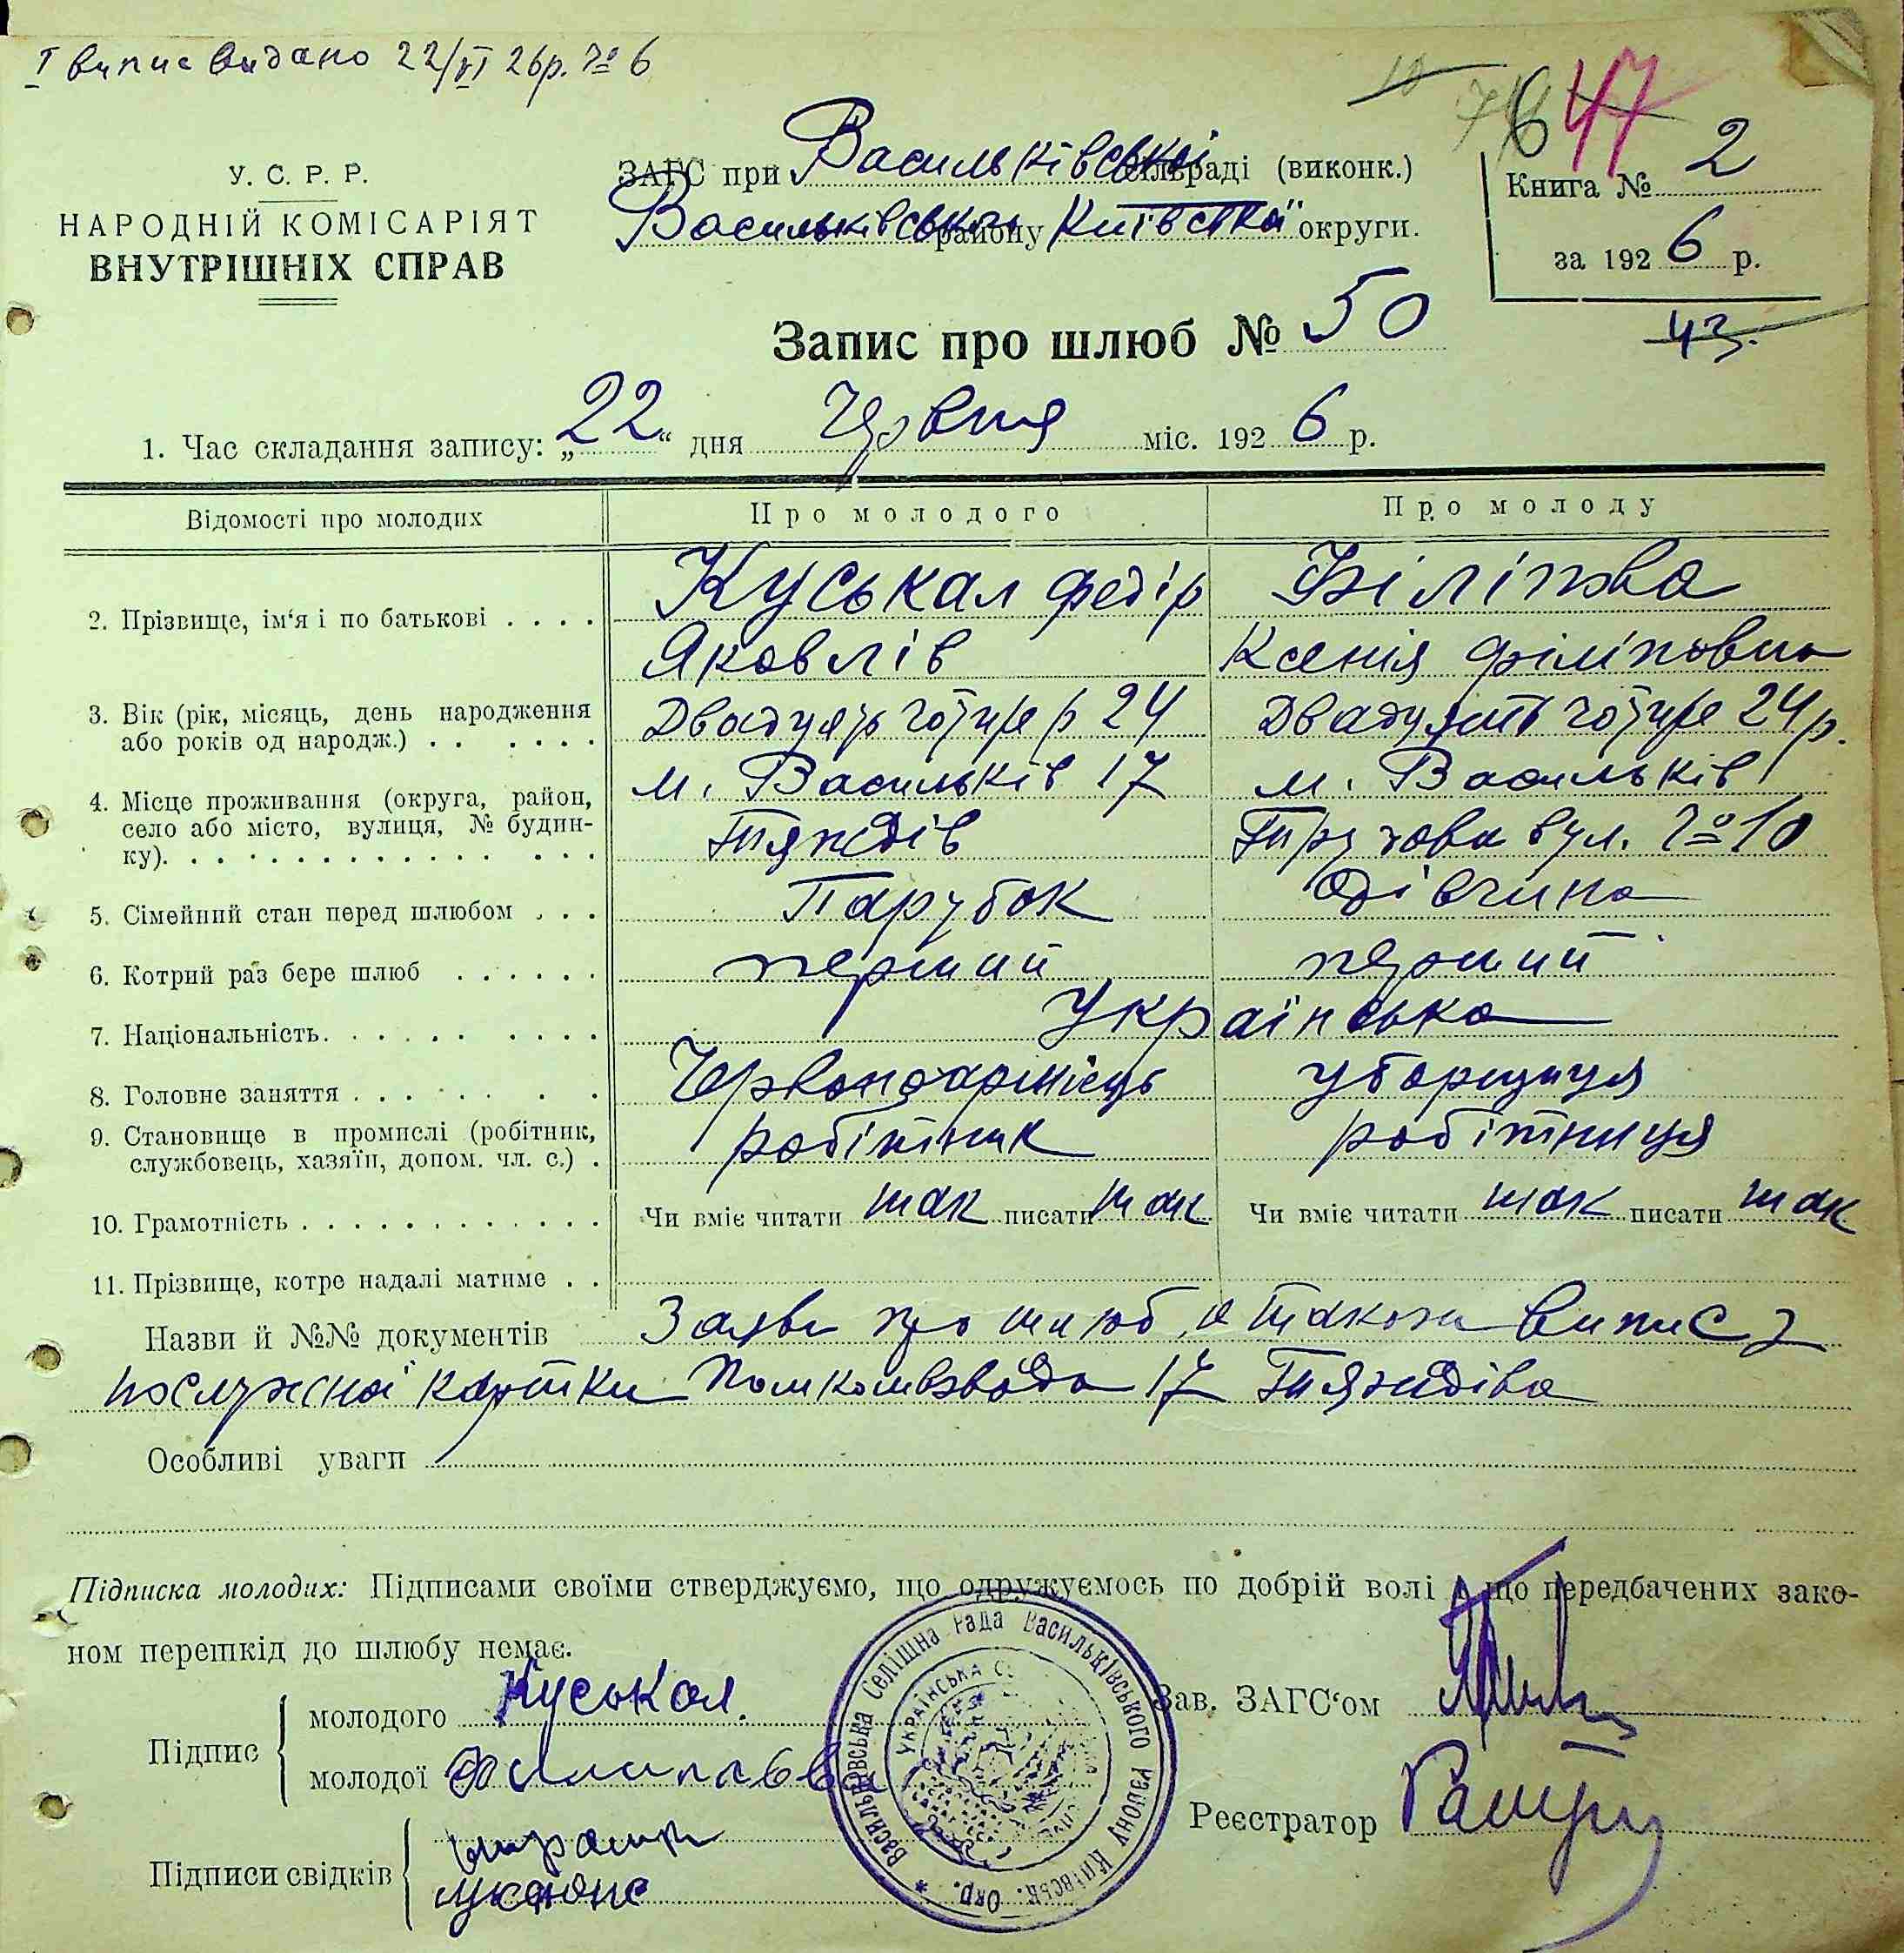 І випис видано 22/VI 26р. № 6
47
У. С. Р. Р.
НАРОДНІЙ КОМІСАРІЯТ
ВНУТРІШНІХ СПРАВ
ЗАГС при Васильківській сільраді (виконк.)
Васильківського району Київської округи.
Книга № 2
за 1926 р.
43
Запис про шлюб № 50
1. Час складання запису: „22“ дня Червня міс. 1926 р.
Відомості про молодих
Про молодого
Про молоду
2. Прізвище, ім'я і по батькові
Куськал Федір
Яковлів
Філіпова
Ксенія Філіповна
3. Вік (рік, місяць, день народження
або років од народж.)
Двадцять чотире р 24
Двадцять чотире 24 р.
4. Місце проживання (округа, район,
село або місто, вулиця, № будин-
ку).
м. Васильків 17
Тяждів
м. Васильків
вул. № 10
5. Сімейний стан перед шлюбом
Парубок
Дівчина
6. Котрий раз бере шлюб
перший
перший
7. Національність.
Українська
8. Головне заняття
Червоноармієць
уборщиця
9. Становище в промислі (робітник,
службовець, хазяїн, допом. чл. с.)
робітник
робітниця
10. Грамотність
Чи вміє читати так писати так
Чи вміє читати так писати так
11. Прізвище, котре надалі матиме
Назви й №№ документів Заяви про шлюб, а також випис з
послужної картки Помкомвзвода 17 Тяждіва
Особливі уваги
Підписка молодих: Підписами своїми стверджуємо, що одружуємось по добрій волі і що передбачених зако-
ном перешкід до шлюбу немає.
Підпис
молодого Куськал.
молодої
Підписи свідків
Зав. ЗАГС'ом
Реєстратор
Васильківська Селішна Рада Васильківського Району Київськ. Окр.
УКРАЇНСЬКА